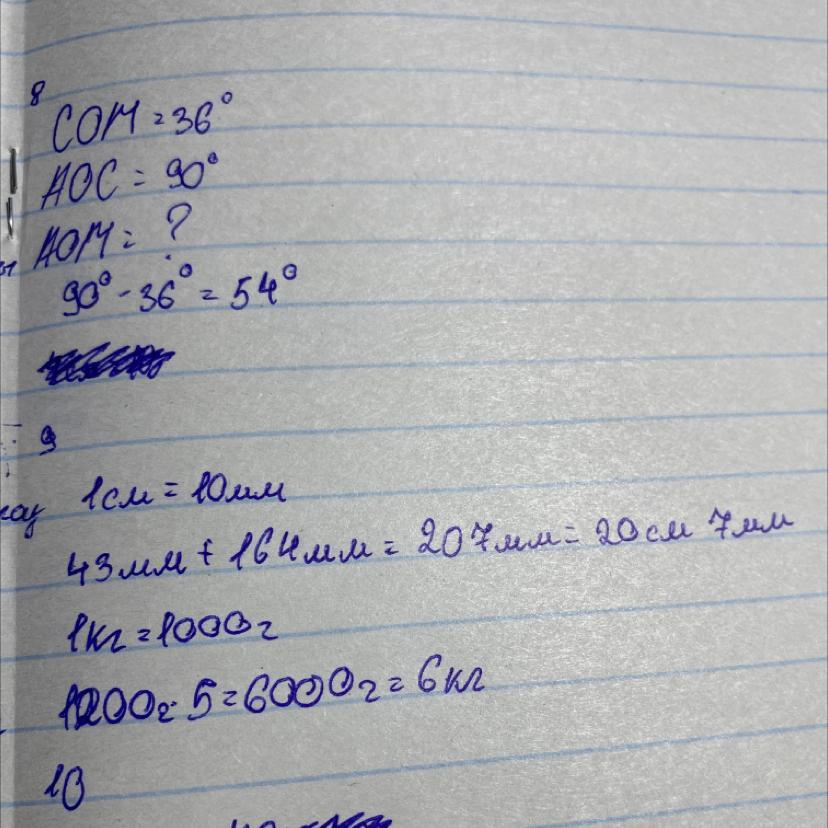 8
COM = 36°
AOC = 90°
AOM = ?
90° - 36° = 54°
9
1см = 10мм
43мм + 164мм = 207мм = 20см 7мм
1кг = 1000г
1200г · 5 = 6000г = 6кг
10